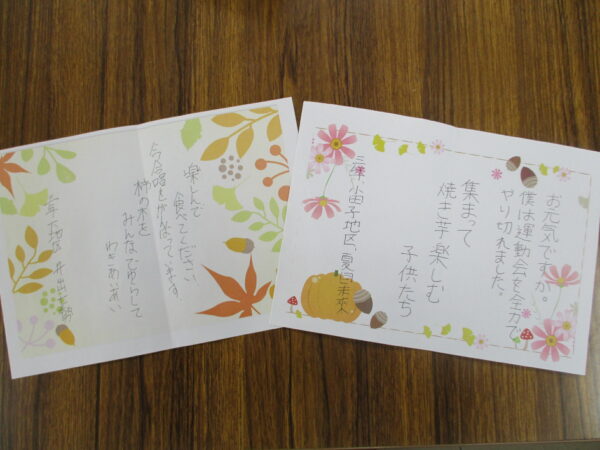 お元気ですか。
僕は運動会を全力で
やり切れました。
集まって
焼き芋楽しむ
子供たち
小田子地区、夏目未来
楽しんで
食べてください
今合唱をがんばってます。
柿の木を
みんなでゆらして
わらいあい